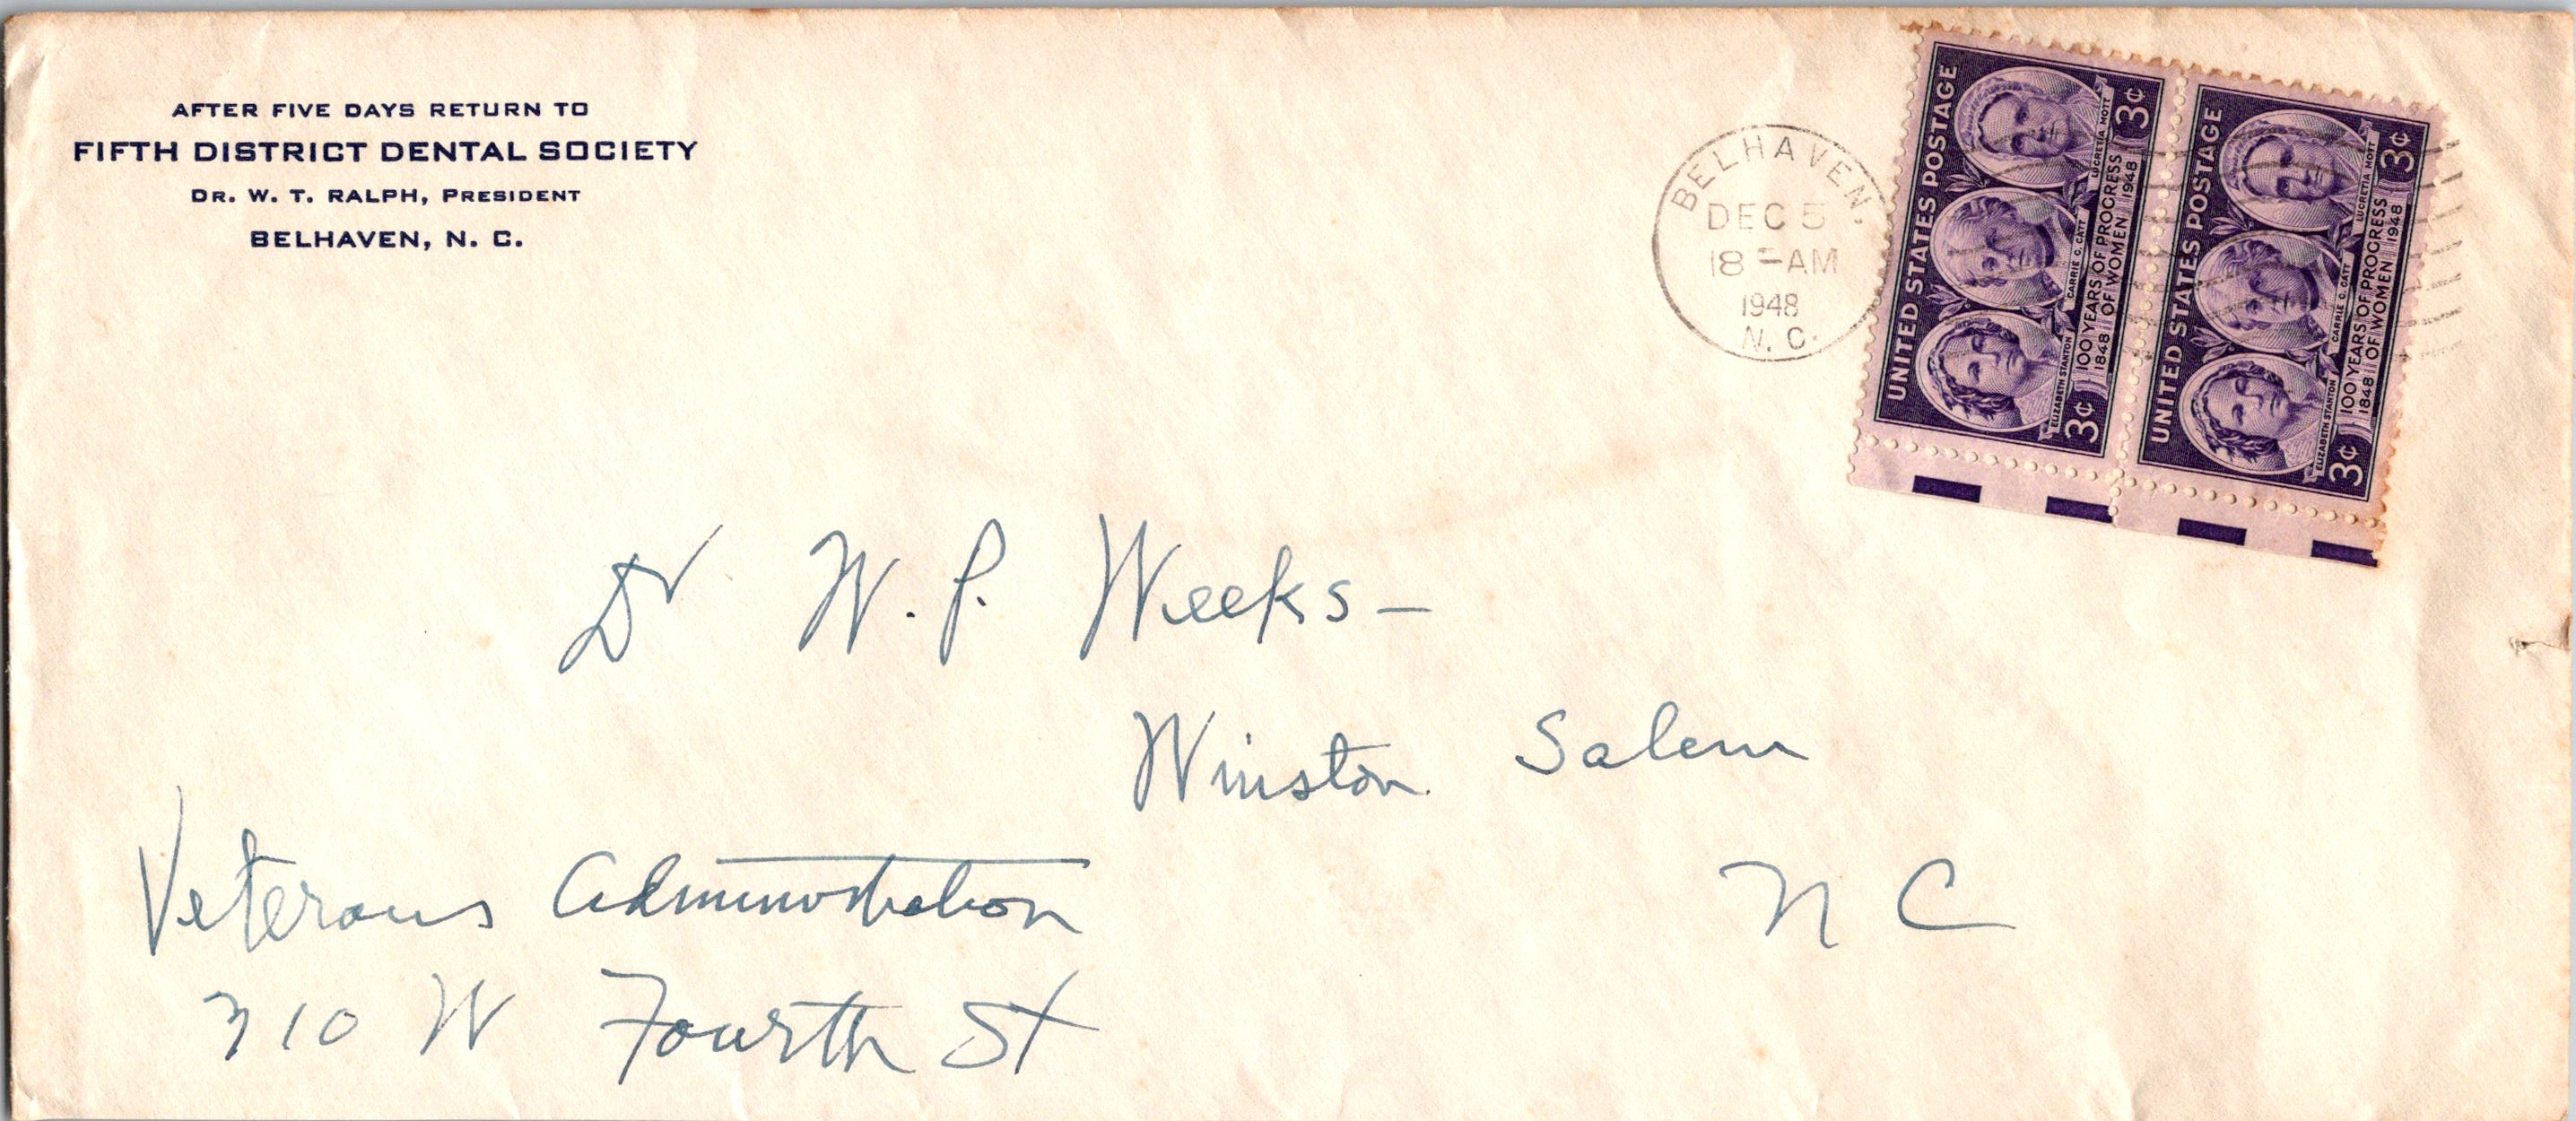 AFTER FIVE DAYS RETURN TO
FIFTH DISTRICT DENTAL SOCIETY
DR. W. T. RALPH, PRESIDENT
BELHAVEN, N. C.
BELHAVEN,
DEC 5
18 - AM
1948
N. C.
UNITED STATES POSTAGE
3¢
LUCRETIA MOTT
CARRIE C. CATT
ELIZABETH STANTON
100 YEARS OF PROGRESS
1848 OF WOMEN 1948
3¢
UNITED STATES POSTAGE
3¢
LUCRETIA MOTT
CARRIE C. CATT
ELIZABETH STANTON
100 YEARS OF PROGRESS
1848 OF WOMEN 1948
3¢
Dr W. P. Weeks –
Winston Salem
N C
Veterans Administration
310 W Fourth St